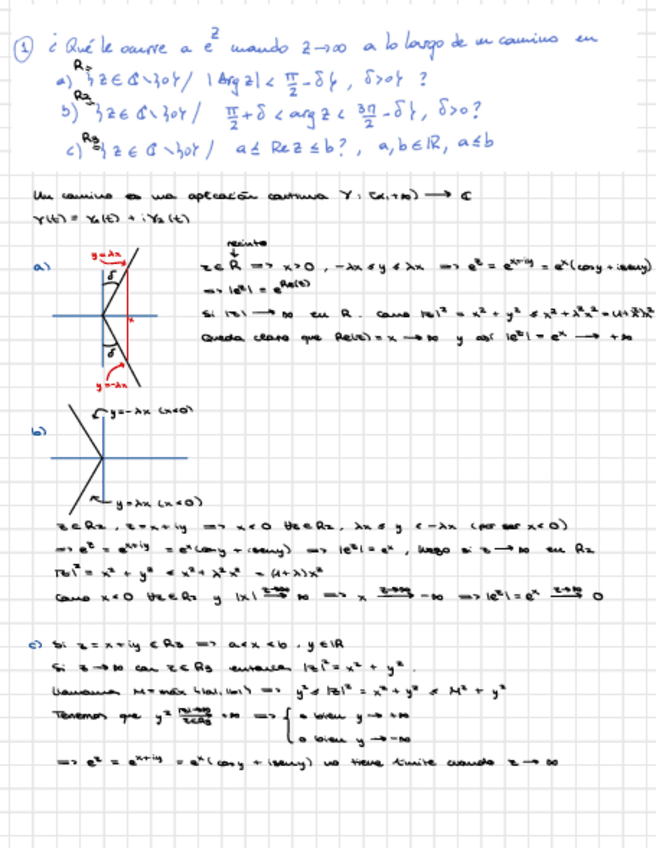 ① ¿Qué le ocurre a e^z cuando z→∞ a lo largo de un camino en
R₁
a) {z∈ℂ\{0} / |Arg z| < π/2 - δ}, δ>0} ?
R₂
b) {z∈ℂ\{0} / π/2 + δ < arg z < 3π/2 - δ}, δ>0?
R₃
c) {z∈ℂ\{0} / a ≤ Re z ≤ b?, a,b∈ℝ, a≤b
Un camino es una aplicación continua γ: [α,+∞) → ℂ
γ(t) = γ₁(t) + iγ₂(t)
recinto
↓
a) y=λx δ z∈R ⇒ x>0, -λx ≤ y ≤ λx ⇒ e^z = e^{x+iy} = e^x(cosy+iseny)
⇒ |e^z| = e^{Re(z)}
x Si |z| → ∞ en R. como |z|² = x² + y² ≤ x² + λ²x² = (1+λ²)x²
δ Queda claro que Re(z) = x → ∞ y así |e^z| = e^x → +∞
y=-λx
b) y=-λx (x<0)
y=λx (x<0)
z∈R₂, z=x+iy ⇒ x<0 ∀z∈R₂, λx ≤ y ≤ -λx (por ser x<0)
⇒ e^z = e^{x+iy} = e^x(cosy + iseny) ⇒ |e^z| = e^x, luego si z→∞ en R₂
|z|² = x² + y² ≤ x² + λ²x² = (1+λ)x²
Como x<0 ∀z∈R₂ y |x| →^{z→∞} ∞ ⇒ x →^{z→∞} -∞ ⇒ |e^z| = e^x →^{z→∞} 0
c) Si z = x+iy ∈ R₃ ⇒ a<x<b, y∈ℝ
Si z→∞ con z∈R₃ entonces |z|² = x² + y².
Llamamos M = máx {|a|,|b|} ⇒ y² ≤ |z|² = x² + y² ≤ M² + y²
Tenemos que y² →^{|z|→∞}_{z∈R₃} +∞ ⇒ { o bien y → +∞
o bien y → -∞
⇒ e^z = e^{x+iy} = e^x(cosy + iseny) no tiene límite cuando z→∞